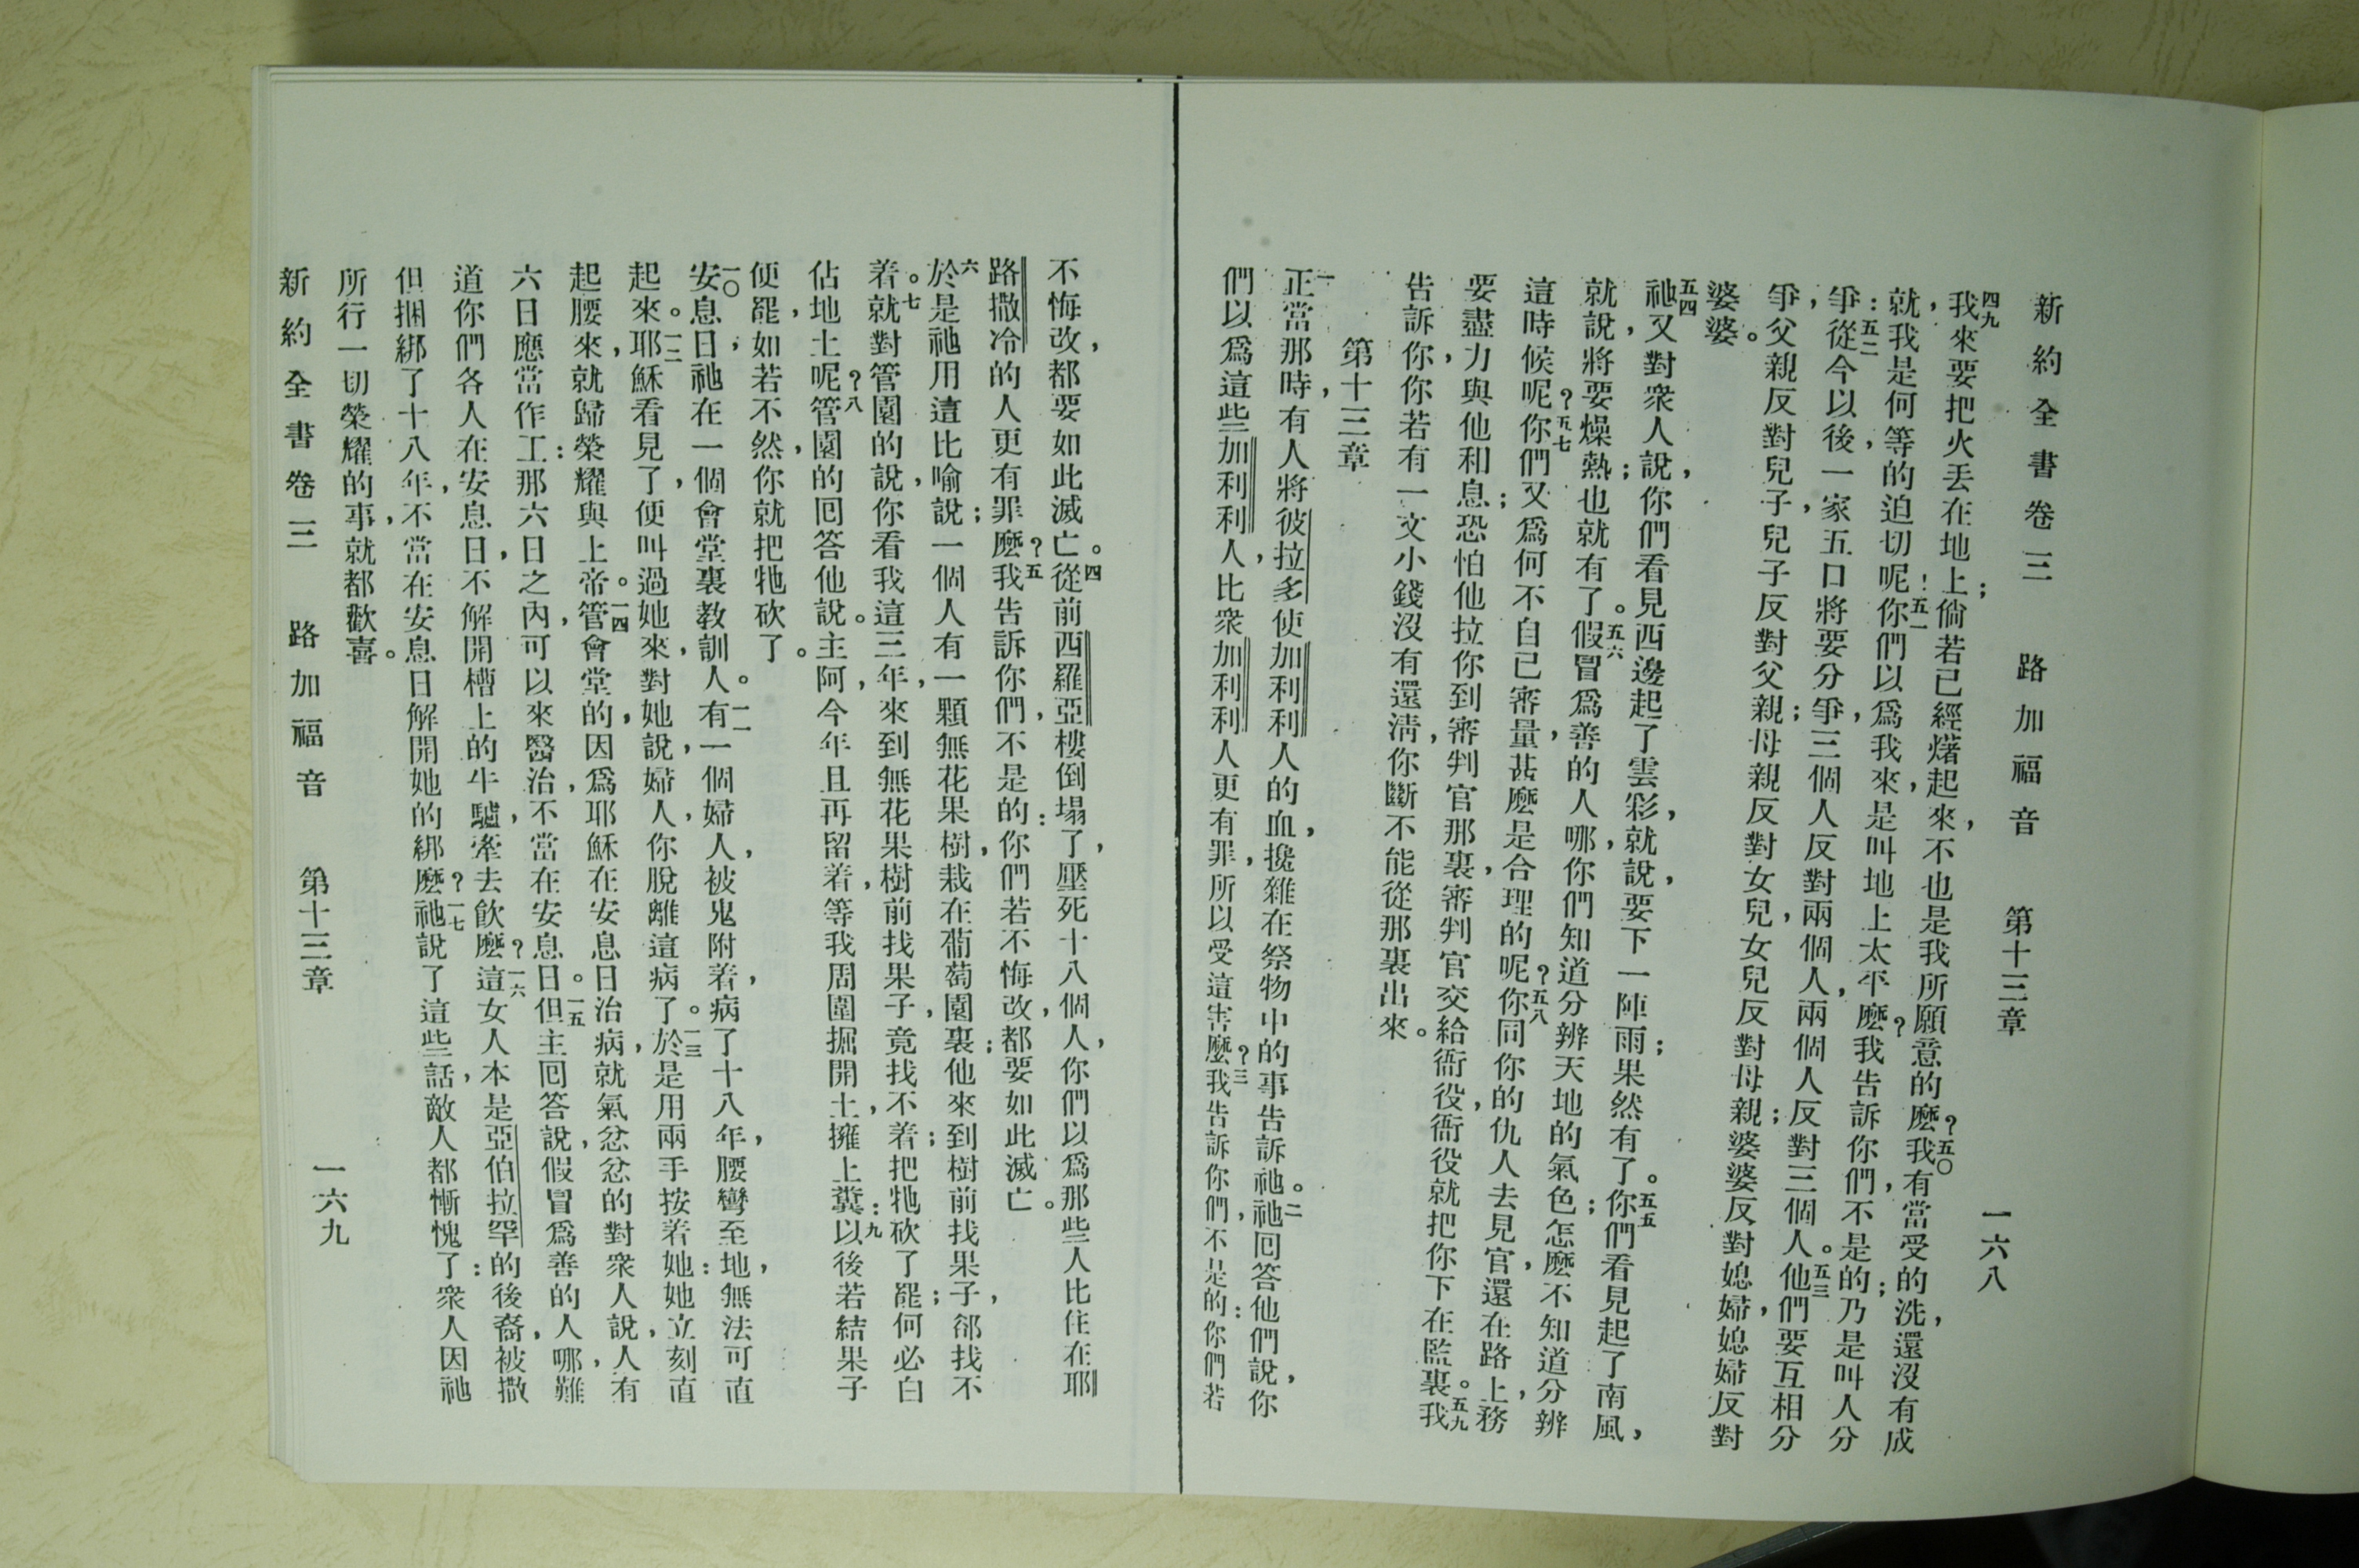 新約全書卷三 路加福音 第十三章 一六八
四九我來要把火丟在地上；倘若已經燔起來，不也是我所願意的麽？五〇我有當受的洗，還沒有成
就，我是何等的迫切呢！五一你們以爲我來，是叫地上太平麽？我告訴你們，不是的；乃是叫人分
爭：五二從今以後，一家五口將要分爭，三個人反對兩個人，兩個人反對三個人。五三他們要互相分
爭，父親反對兒子，兒子反對父親；母親反對女兒，女兒反對母親；婆婆反對媳婦，媳婦反對
婆婆。
五四祂又對衆人說，你們看見西邊起了雲彩，就說，要下一陣雨；果然有了。五五你們看見起了南風，
就說，將要燥熱；也就有了。五六假冒爲善的人哪，你們知道分辨天地的氣色；怎麽不知道分辨
這時候呢？五七你們又爲何不自己審量，甚麽是合理的呢？五八你同你的仇人去見官，還在路上，務
要盡力與他和息；恐怕他拉你到審判官那裏，審判官交給衙役，衙役就把你下在監裏。五九我
告訴你，你若有一文小錢沒有還淸，你斷不能從那裏出來。
第十三章
一正當那時，有人將彼拉多使加利利人的血，攙雜在祭物中的事告訴祂。二祂囘答他們說，你
們以爲這些加利利人，比衆加利利人更有罪，所以受這害麽？三我告訴你們，不是的：你們若
不悔改，都要如此滅亡。四從前西羅亞樓倒塌了，壓死十八個人，你們以爲那些人比住在耶
路撒冷的人更有罪麽？五我告訴你們，不是的：你們若不悔改，都要如此滅亡。
六於是祂用這比喻說；一個人有一顆無花果樹，栽在葡萄園裏；他來到樹前找果子，郤找不
着。七就對管園的說，你看我這三年，來到無花果樹前找果子，竟找不着；把牠砍了罷；何必白
佔地土呢？八管園的囘答他說。主阿，今年且再留着，等我周圍掘開土，擁上糞：九以後若結果子
便罷，如若不然，你就把牠砍了。
一〇安息日，祂在一個會堂裏教訓人。一一有一個婦人，被鬼附着，病了十八年，腰彎至地，無法可直
起來。一二耶穌看見了，便叫過她來，對她說，婦人，你脫離這病了。一三於是用兩手按着她：她立刻直
起腰來，就歸榮耀與上帝。一四管會堂的，因爲耶穌在安息日治病，就氣忿忿的對衆人說，人有
六日應當作工：那六日之內，可以來醫治，不當在安息日。一五但主囘答說，假冒爲善的人哪，難
道你們各人在安息日，不解開槽上的牛驢，牽去飮麽？一六這女人本是亞伯拉罕的後裔，被撒
但捆綁了十八年，不當在安息日解開她的綁麽？一七祂說了這些話，敵人都慚愧了：衆人因祂
所行一切榮耀的事，就都歡喜。
新約全書卷三 路加福音 第十三章 一六九